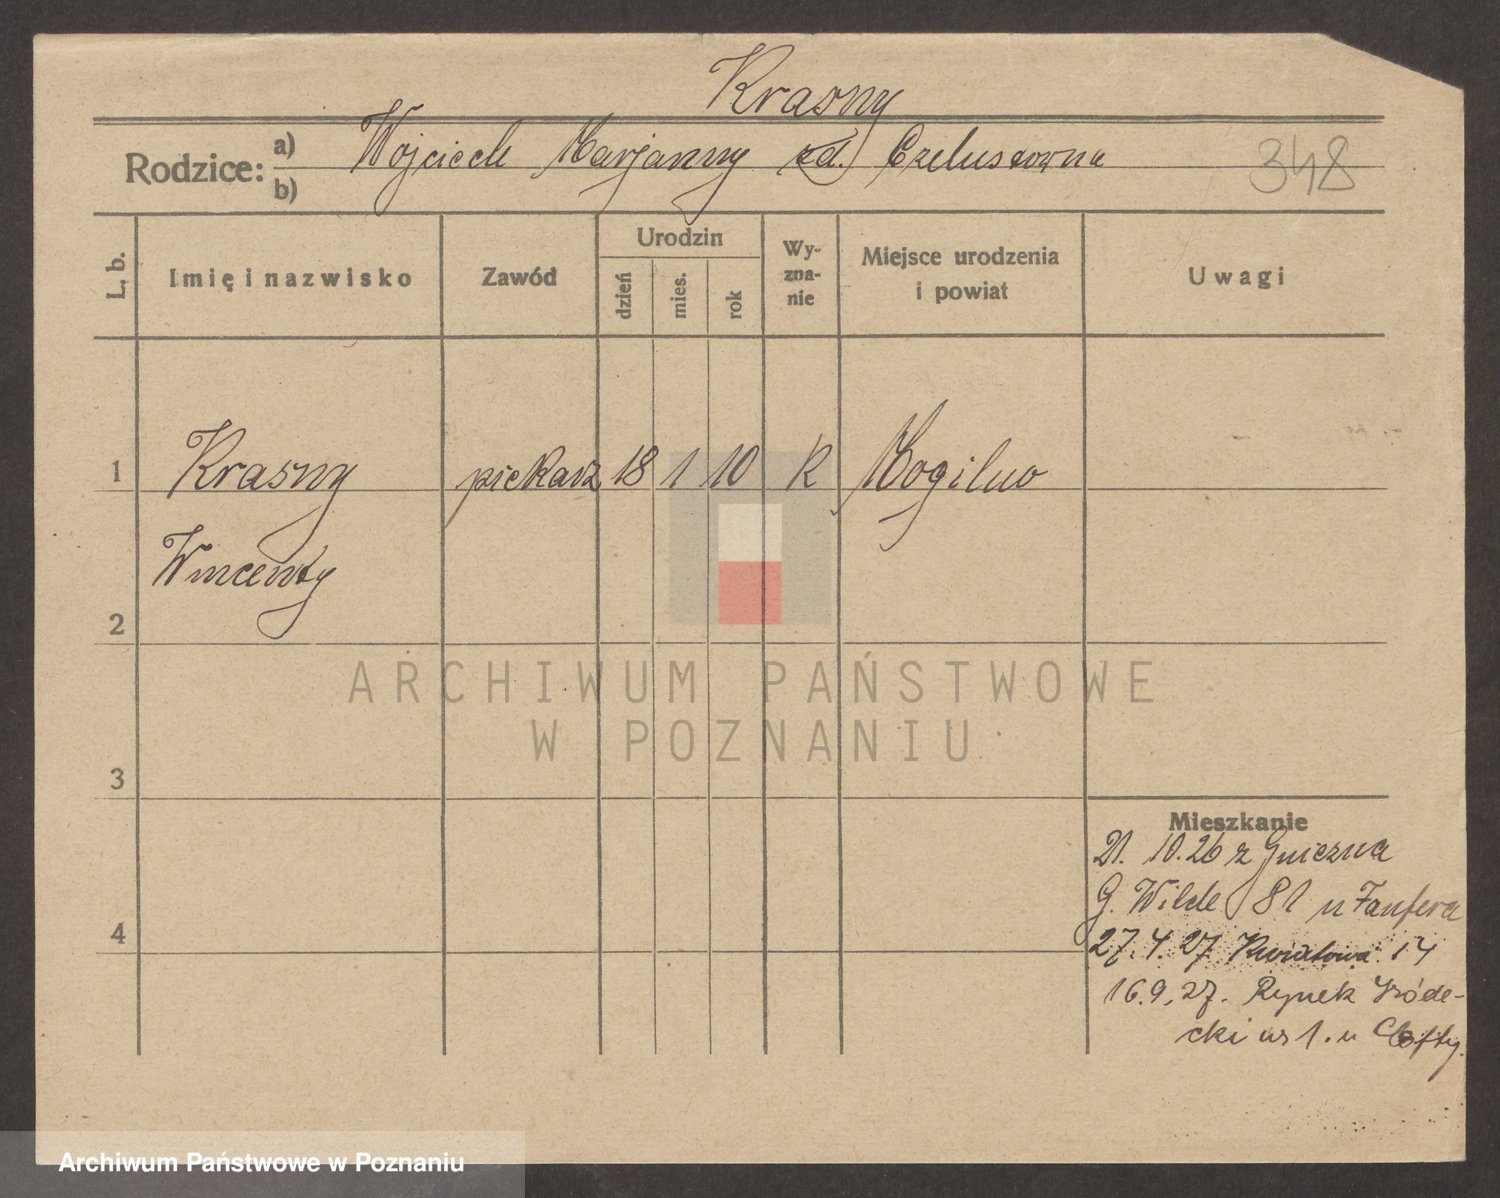 Krasny
Rodzice: a) Wojciech Marjanny zd. Czelustowna
b)
348
L. b.
Imię i nazwisko
Zawód
Urodzin
dzień
mies.
rok
Wy-
zna-
nie
Miejsce urodzenia
i powiat
Uwagi
1 Krasny piekarz 18 1 10 K Mogilno
Wincenty
2
3
4
Mieszkanie
21. 10. 26 z Gniezna
G. Wilde 81 u
27. 4. 27 Kwiatowa 14
16. 9. 27. Rynek Śróde-
cki nr 1. u
ARCHIWUM PAŃSTWOWE
W POZNANIU
Archiwum Państwowe w Poznaniu